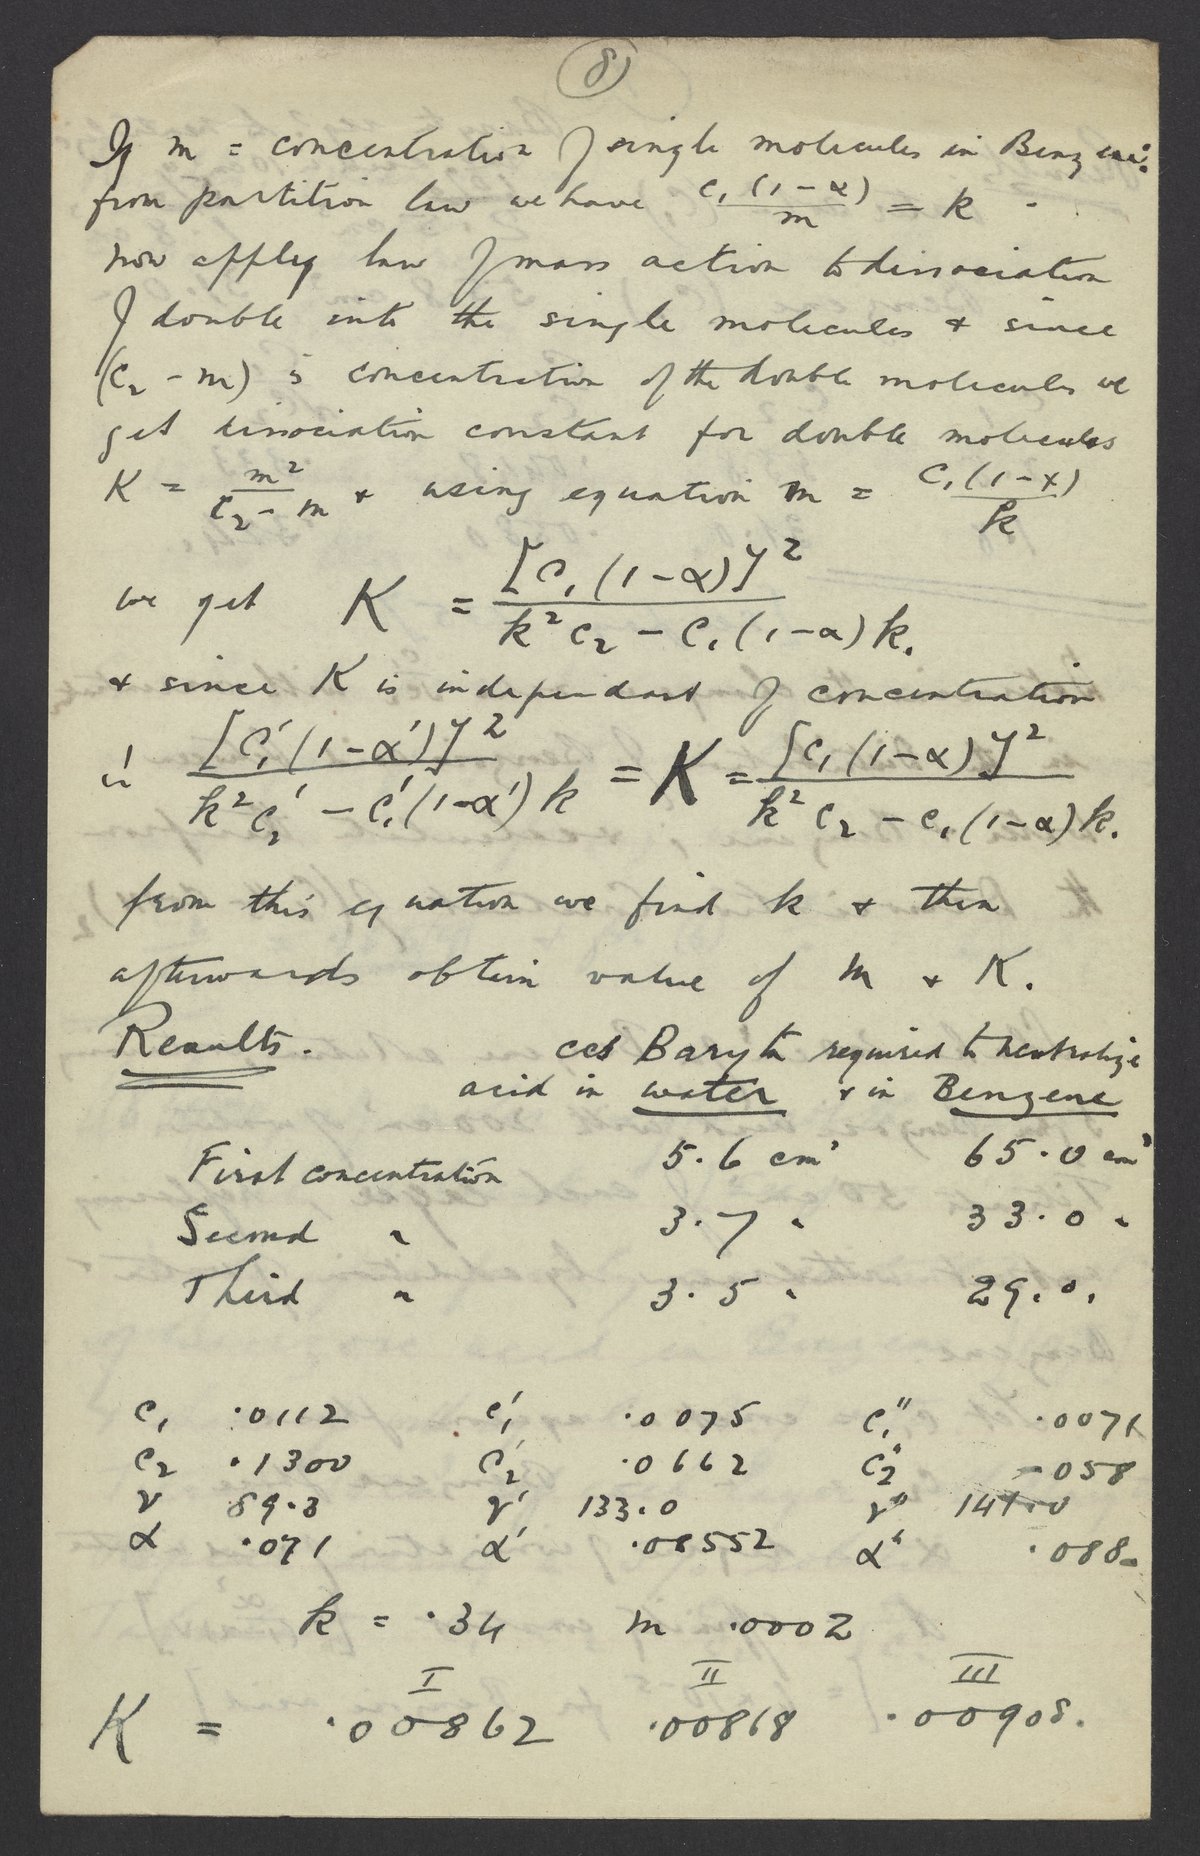 8
If m = concentration of single molecules in Benzene:
from partition law we have c₁(1-α)/m = k
now apply law of mass action to dissociation
of double into the single molecules & since
(c₂ - m) is concentration of the double molecules we
get dissociation constant for double molecules
K = m²/(c₂ - m) & using equation m = c₁(1-x)/k
we get K = [c₁(1-α)]²/(k²c₂ - c₁(1-α)k.)
& since K is independent of concentration
[c₁'(1-α')]²/(k²c₂' - c₁'(1-α')k) = K = [c₁(1-α)]²/(k²c₂ - c₁(1-α)k.)
from this equation we find k & then
afterwards obtain value of m & K.
Results. ccs Baryta required to neutralize
acid in water & in Benzene
First concentration 5.6 cm³ 65.0 cm³
Second " 3.7 " 33.0 "
Third " 3.5 " 29.0.
c₁ ·0112 c₁' ·0075 c₁'' ·0071
c₂ ·1300 c₂' ·0662 c₂'' ·058
v 89.3 v' 133.0 v'' 141.0
α ·071 α' ·08552 α'' ·088
k = ·34 m ·0002
I II III
K = ·00862 ·00868 ·00908.